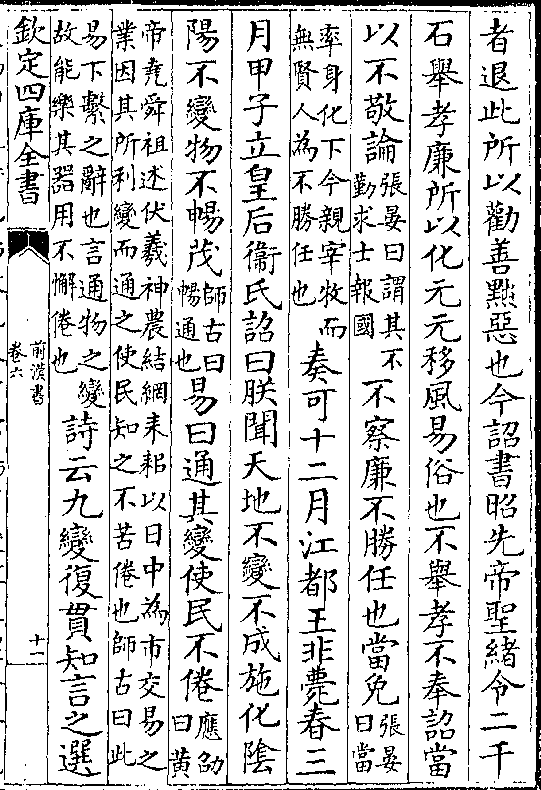 者退此所以勸善黜惡也今詔書昭先帝聖緒令二千
石舉孝廉所以化元元移風易俗也不舉孝不奉詔當
以不敬論張晏曰謂其不勤求士報國不察廉不勝任也當免張晏曰當
率身化下今親宰牧而無賢人為不勝任也奏可十二月江都王非薨春三
月甲子立皇后衞氏詔曰朕聞天地不變不成施化隂
陽不變物不暢茂師古曰暢通也易曰通其變使民不倦應劭曰黄
帝堯舜祖述伏羲神農結網耒耜以日中為市交易之業因其所利變而通之使民知之不苦倦也師古曰此
易下繫之辭也言通物之變故能樂其器用不懈倦也詩云九變復貫知言之選
欽定四庫全書
前漢書
卷六
十一